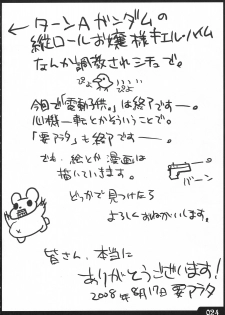 ←ターンAガンダムの
縦ロールお嬢様キエル・ハイム
なんか調教されシチュで。
ぴよ ぴよ
今回で「電動子供。」は終了です——。
心機一転とかそういうことで。
「要アラタ」も終了です——。
でも、絵とか漫画は
描いていきます。
どっかで見つけたら
バーン
よろしくおねがいします。
皆さん、本当に
ありがとうございます!
2008年8月17日 要アラタ
024